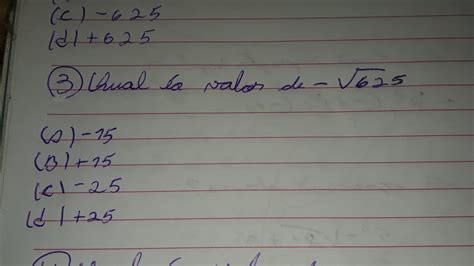 (C) -625
(d) +625
③ Qual é o valor de -√625
(A) -15
(B) +15
(c) -25
(d) +25